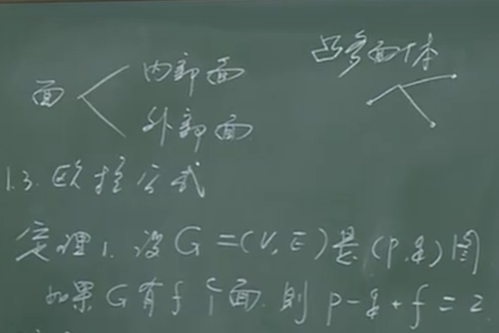 凸多面体
面 内部面
外部面
1.3. 欧拉公式
定理1. 设G=(V,E)是(p,q)图
如果G有f个面.则p-q+f=2